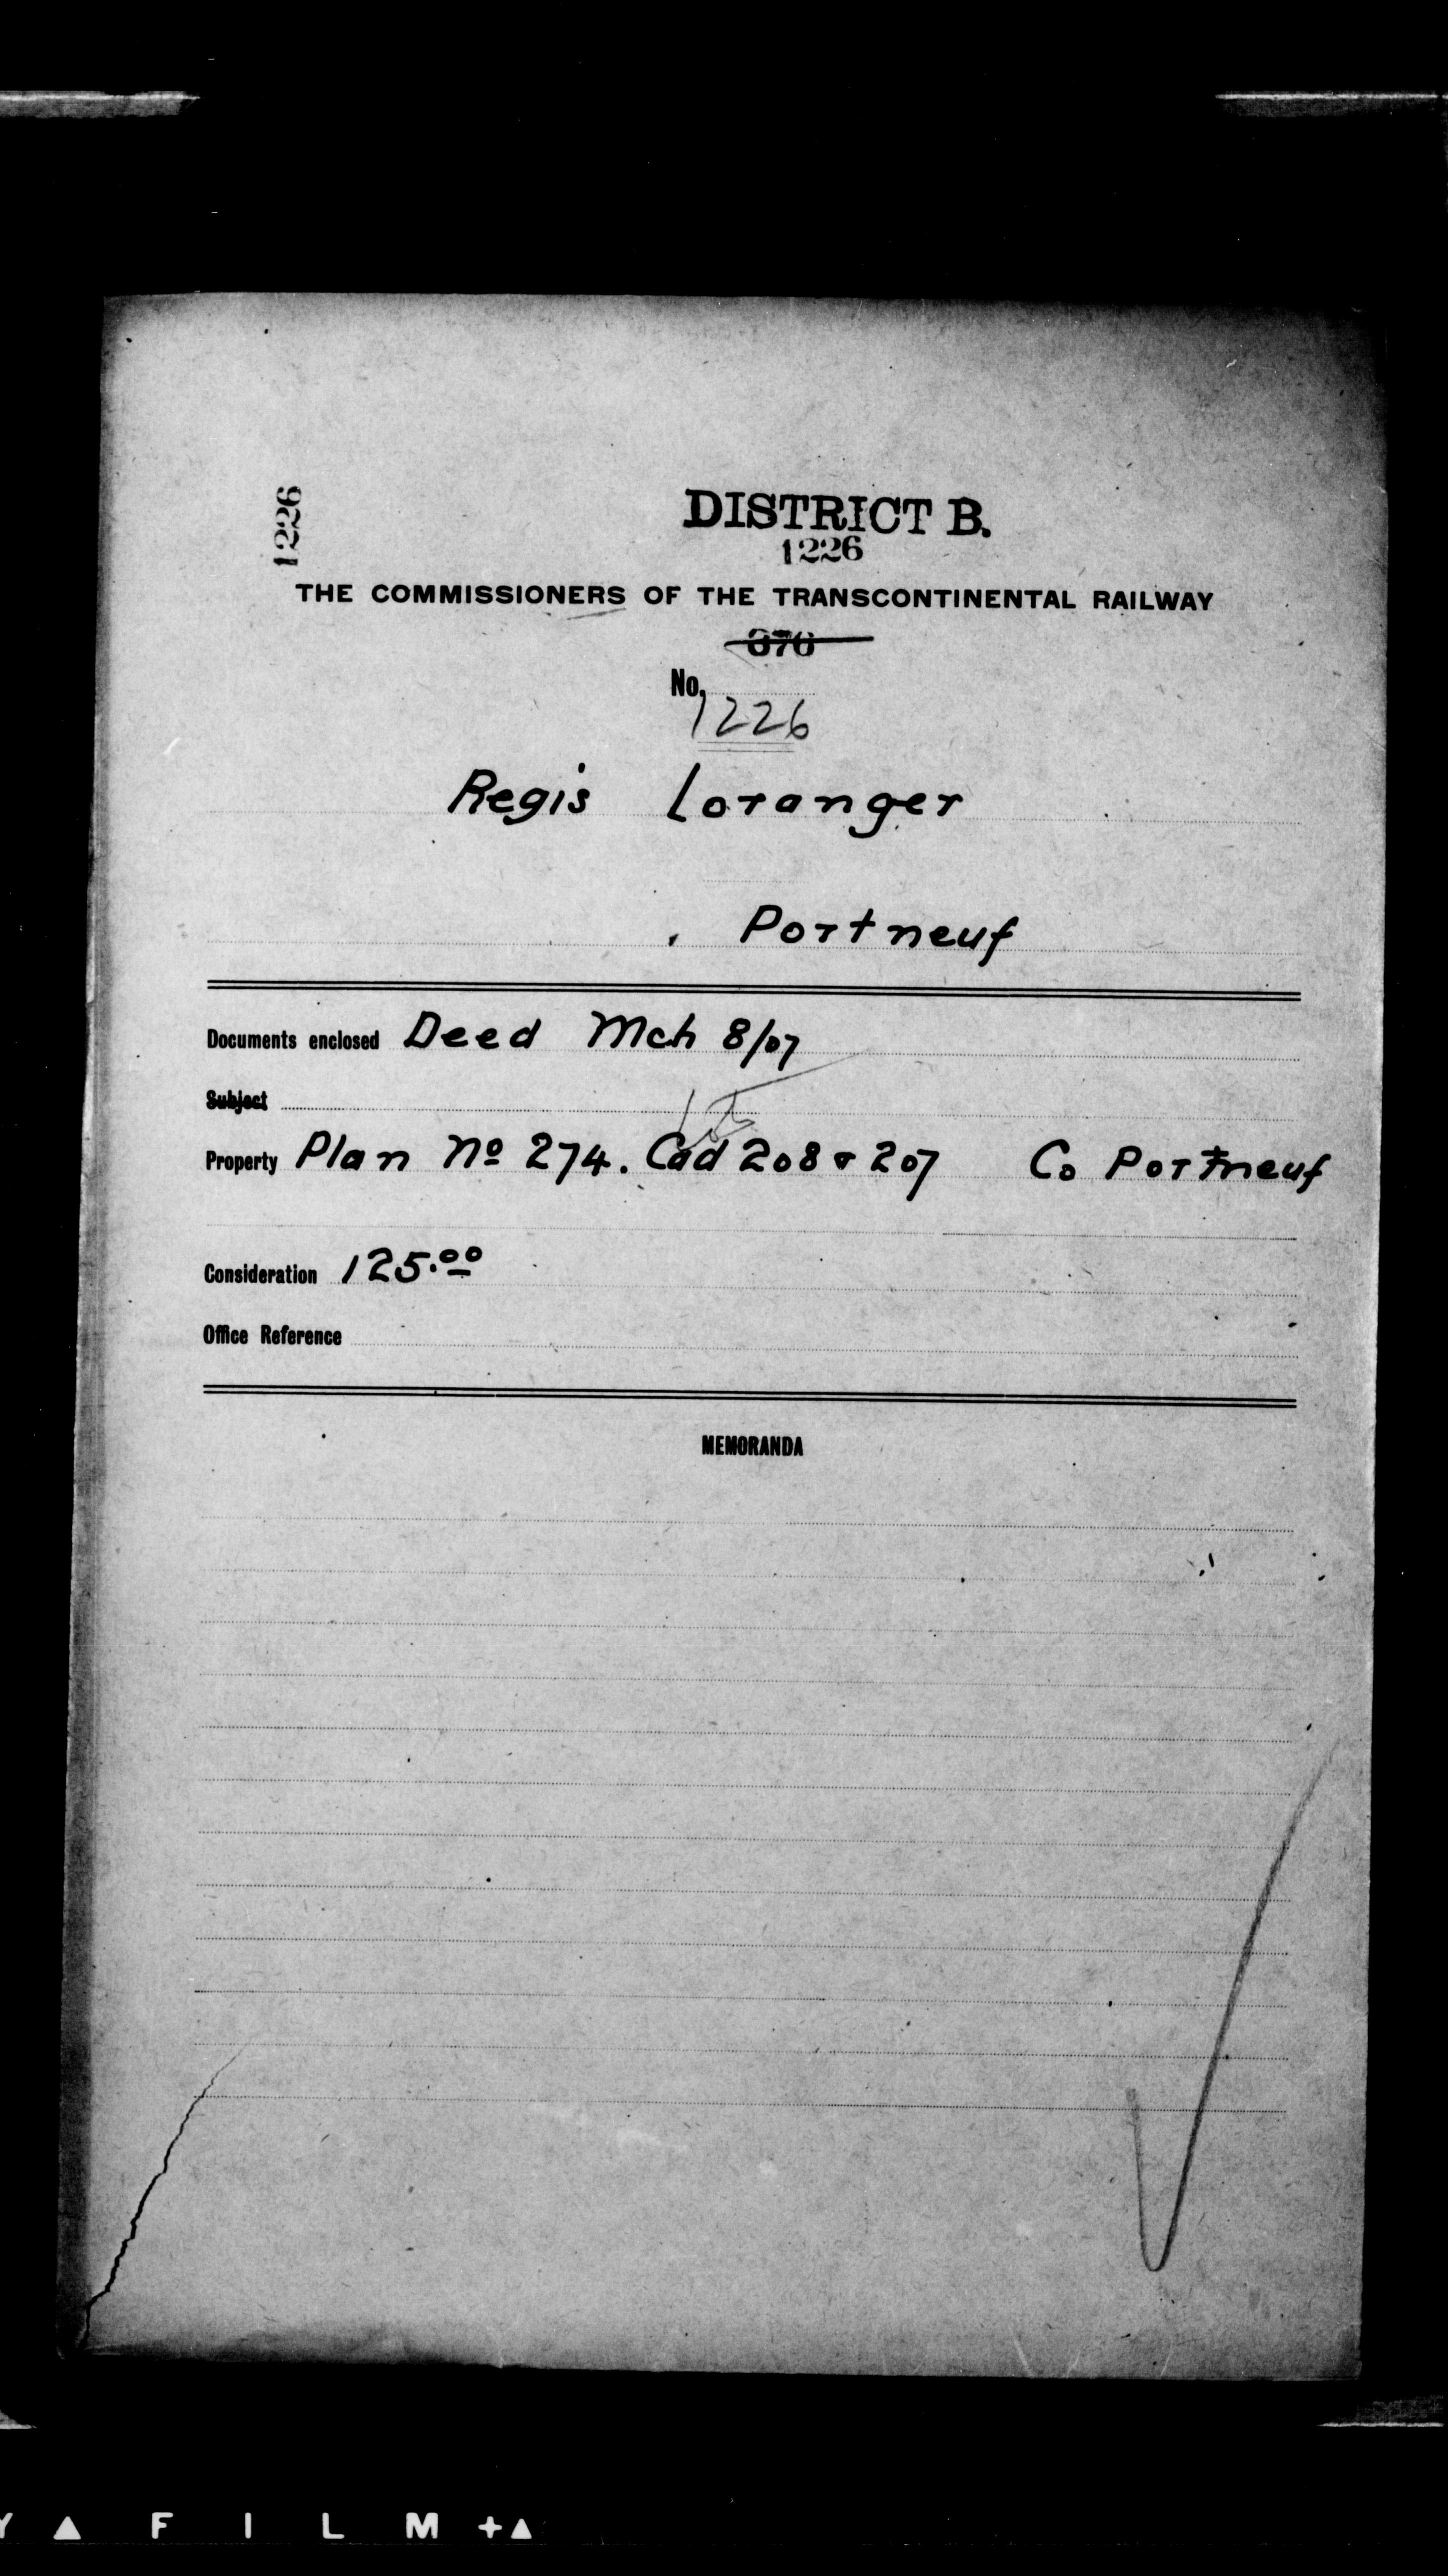 1226
DISTRICT B.
1226
THE COMMISSIONERS OF THE TRANSCONTINENTAL RAILWAY
376
No.
1226
Regis Loranger
Portneuf
Documents enclosed Deed Mch 8/07
Subject
Property Plan No 274. Cad 208 & 207 Co Portneuf
Consideration 125.00
Office Reference
MEMORANDA
Y ▲ F I L M +▲